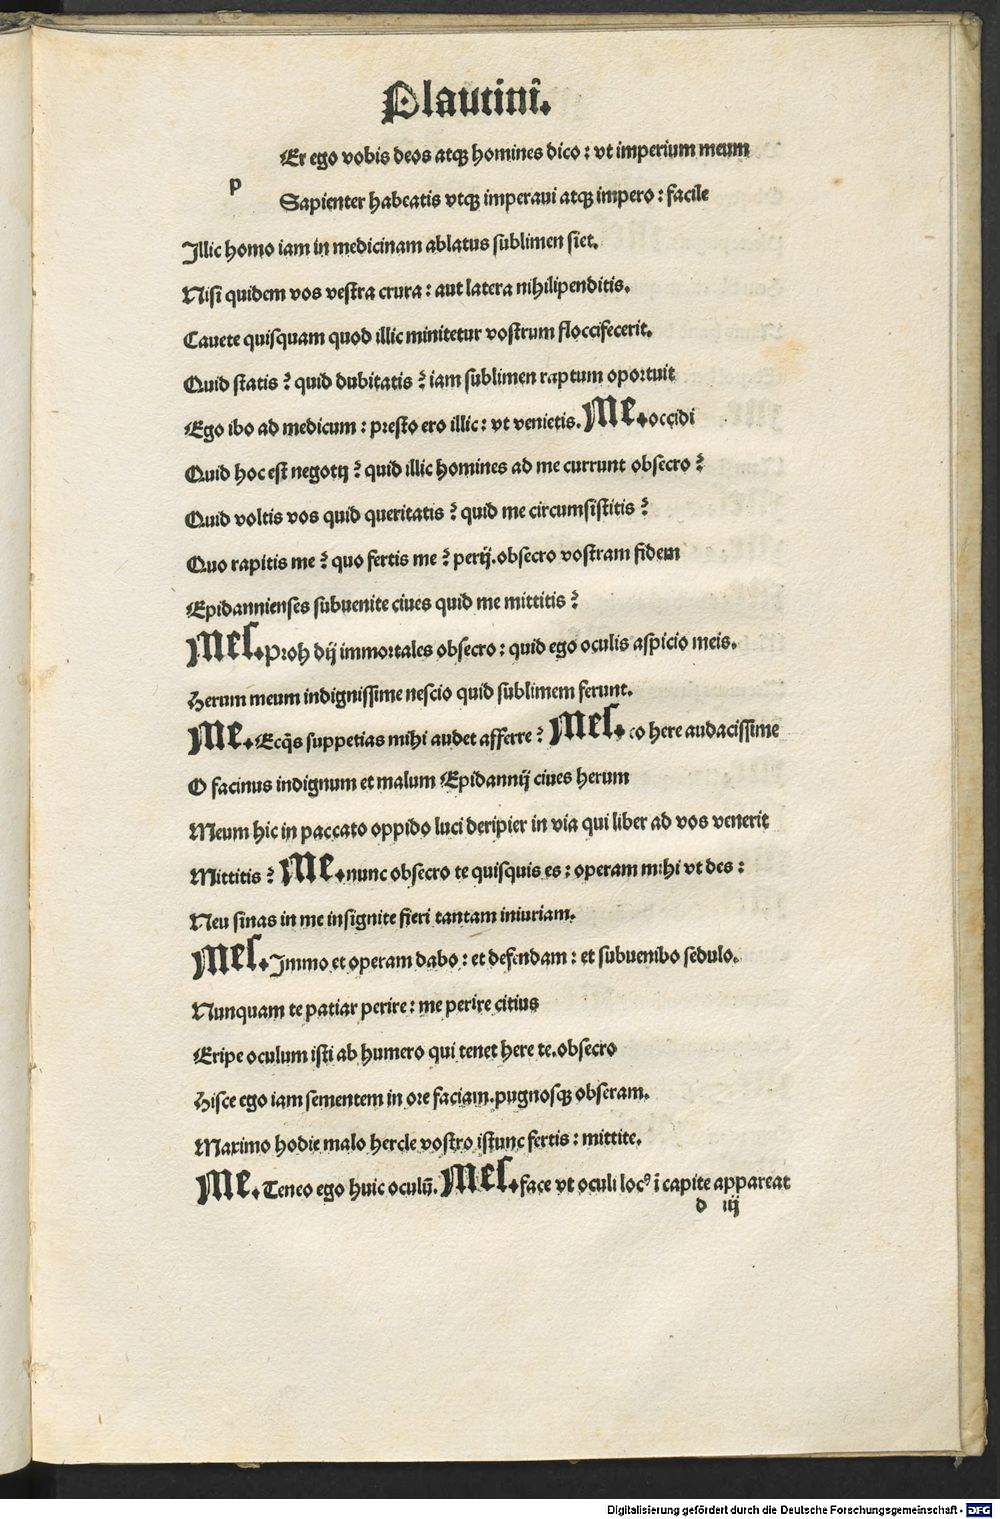 Plautini.
Er ego vobis deos atq; homines dico : vt imperium meum
p
Sapienter habeatis vtq; imperaui atq; impero : facile
Illic homo iam in medicinam ablatus sublimen siet.
Nisi quidem vos vestra crura : aut latera nihilipenditis.
Cauete quisquam quod illic minitetur vostrum floccifecerit.
Quid statis ? quid dubitatis ? iam sublimen raptum oportuit
Ego ibo ad medicum : presto ero illic : vt venietis. Me. occidi
Quid hoc est negotij ? quid illic homines ad me currunt obsecro ?
Quid voltis vos quid queritatis ? quid me circumsistitis ?
Quo rapitis me ? quo fertis me ? perij. obsecro vostram fidem
Epidannienses subuenite ciues quid me mittitis ?
Mes. Proh dij immortales obsecro : quid ego oculis aspicio meis.
Herum meum indignissime nescio quid sublimem ferunt.
Me. Ecq̃s suppetias mihi audet afferre ? Mes. co here audacissime
O facinus indignum et malum Epidannij ciues herum
Meum hic in paccato oppido luci deripier in via qui liber ad vos venerit
Mittitis ? Me. nunc obsecro te quisquis es : operam mihi vt des :
Neu sinas in me insignite fieri tantam iniuriam.
Mes. Immo et operam dabo : et defendam : et subuenibo sedulo.
Nunquam te patiar perire : me perire citius
Eripe oculum isti ab humero qui tenet here te. obsecro
Hisce ego iam sementem in ore faciam. pugnosq; obseram.
Maximo hodie malo hercle vostro istunc fertis : mittite.
Me. Teneo ego huic oculū. Mes. face vt oculi locꝰ ī capite appareat
d iij
Digitalisierung gefördert durch die Deutsche Forschungsgemeinschaft - DFG